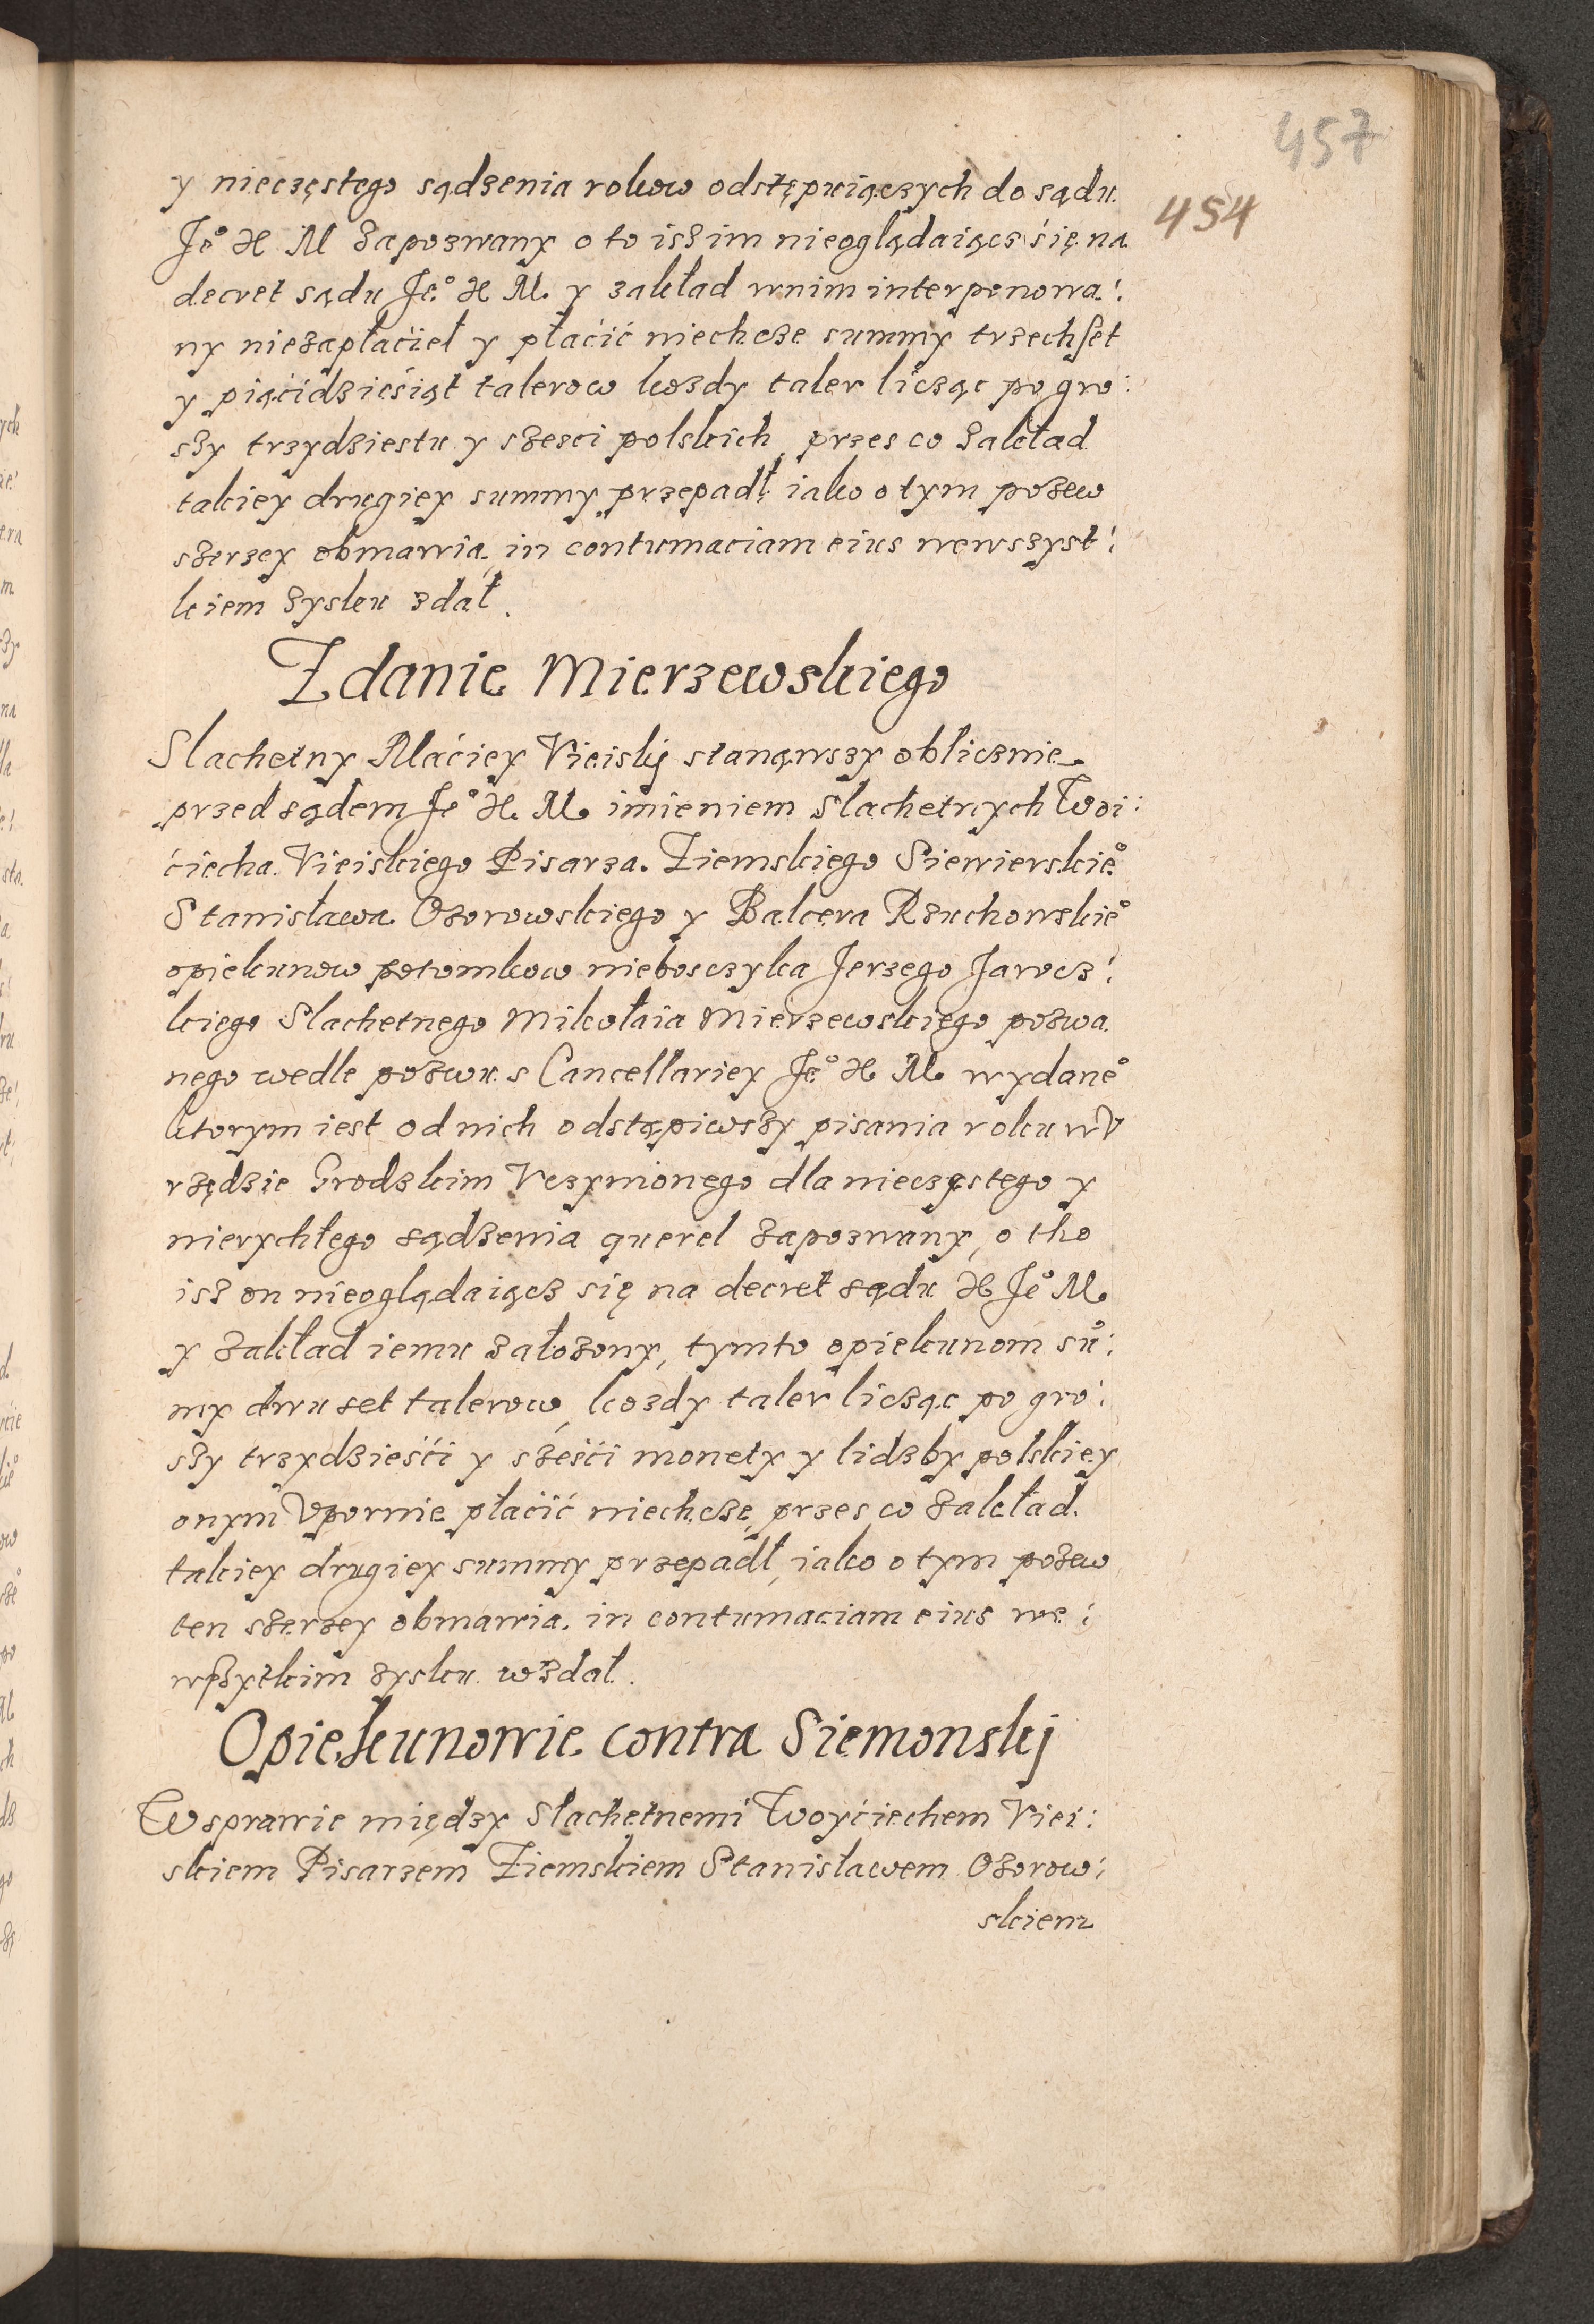 457
454
y nieczęstego sądzenia rokow odstępuiączych do sądu
Jeº X M zapozwany o to isz im nieoglądaiącs się na
decret sądu Jeº X M. y zakład wnim interponowa:
ny niezapłaćieł y płaćić niechcze summy trzechset
y piąćidzieśiąt talerow kozdy taler licząc po gro:
szy trzydziestu y szesci polskich, przes co zakład
takiey drugiey summy przepadł iako o tym pozew
szerzey obmawia, in contumaciam eius wewszyst:
kiem zysku zdał.
Zdanie Mierzewskiego
Slachetny Maćiey Vieiskj stanąwszy oblicznie
przed sądem Jeº X. M. imieniem Slachetnych Woi:
ćiecha Vieiskiego Pisarza Ziemskiego Siewierskieº
Stanisława Ozorowskiego y Balcera Rzuchowskieº
opiekunow potomkow nieboszczyka Jerzego Jarocz:
kiego Slachetnego Mikołaia Mierzewskiego pozwa
nego wedle pozwu s Cancellariey Jeº X M. wydaneº
ktorym iest od nich odstąpiwszy pisania roku w V
rzędzie Grodzkim Vczynionego dla nieczęstego y
nierychłego sądzenia querel zapozwany, o tho
isz on nieoglądaiącz się na decret sądu X Jeº M.
y zakład iemu załozony, tymto opiekunom sū:
my dwu set talerow, kozdy taler licząc po gro:
szy trzydzieśći y sześći monety y lidzby polskiey
onym Vpornie płaćić niechcze, przes co zakład
takiey drugiey summy przepadł, iako o tym pozew
ten szerzey obmawia. in contumaciam eius we:
wszytkim zysku wzdał.
Opiekunowie contra Siemonskj
W sprawie między Slachetnemi Woyćiechem Viei:
skiem Pisarzem Ziemskiem Stanisławem Ozorow:
skiem